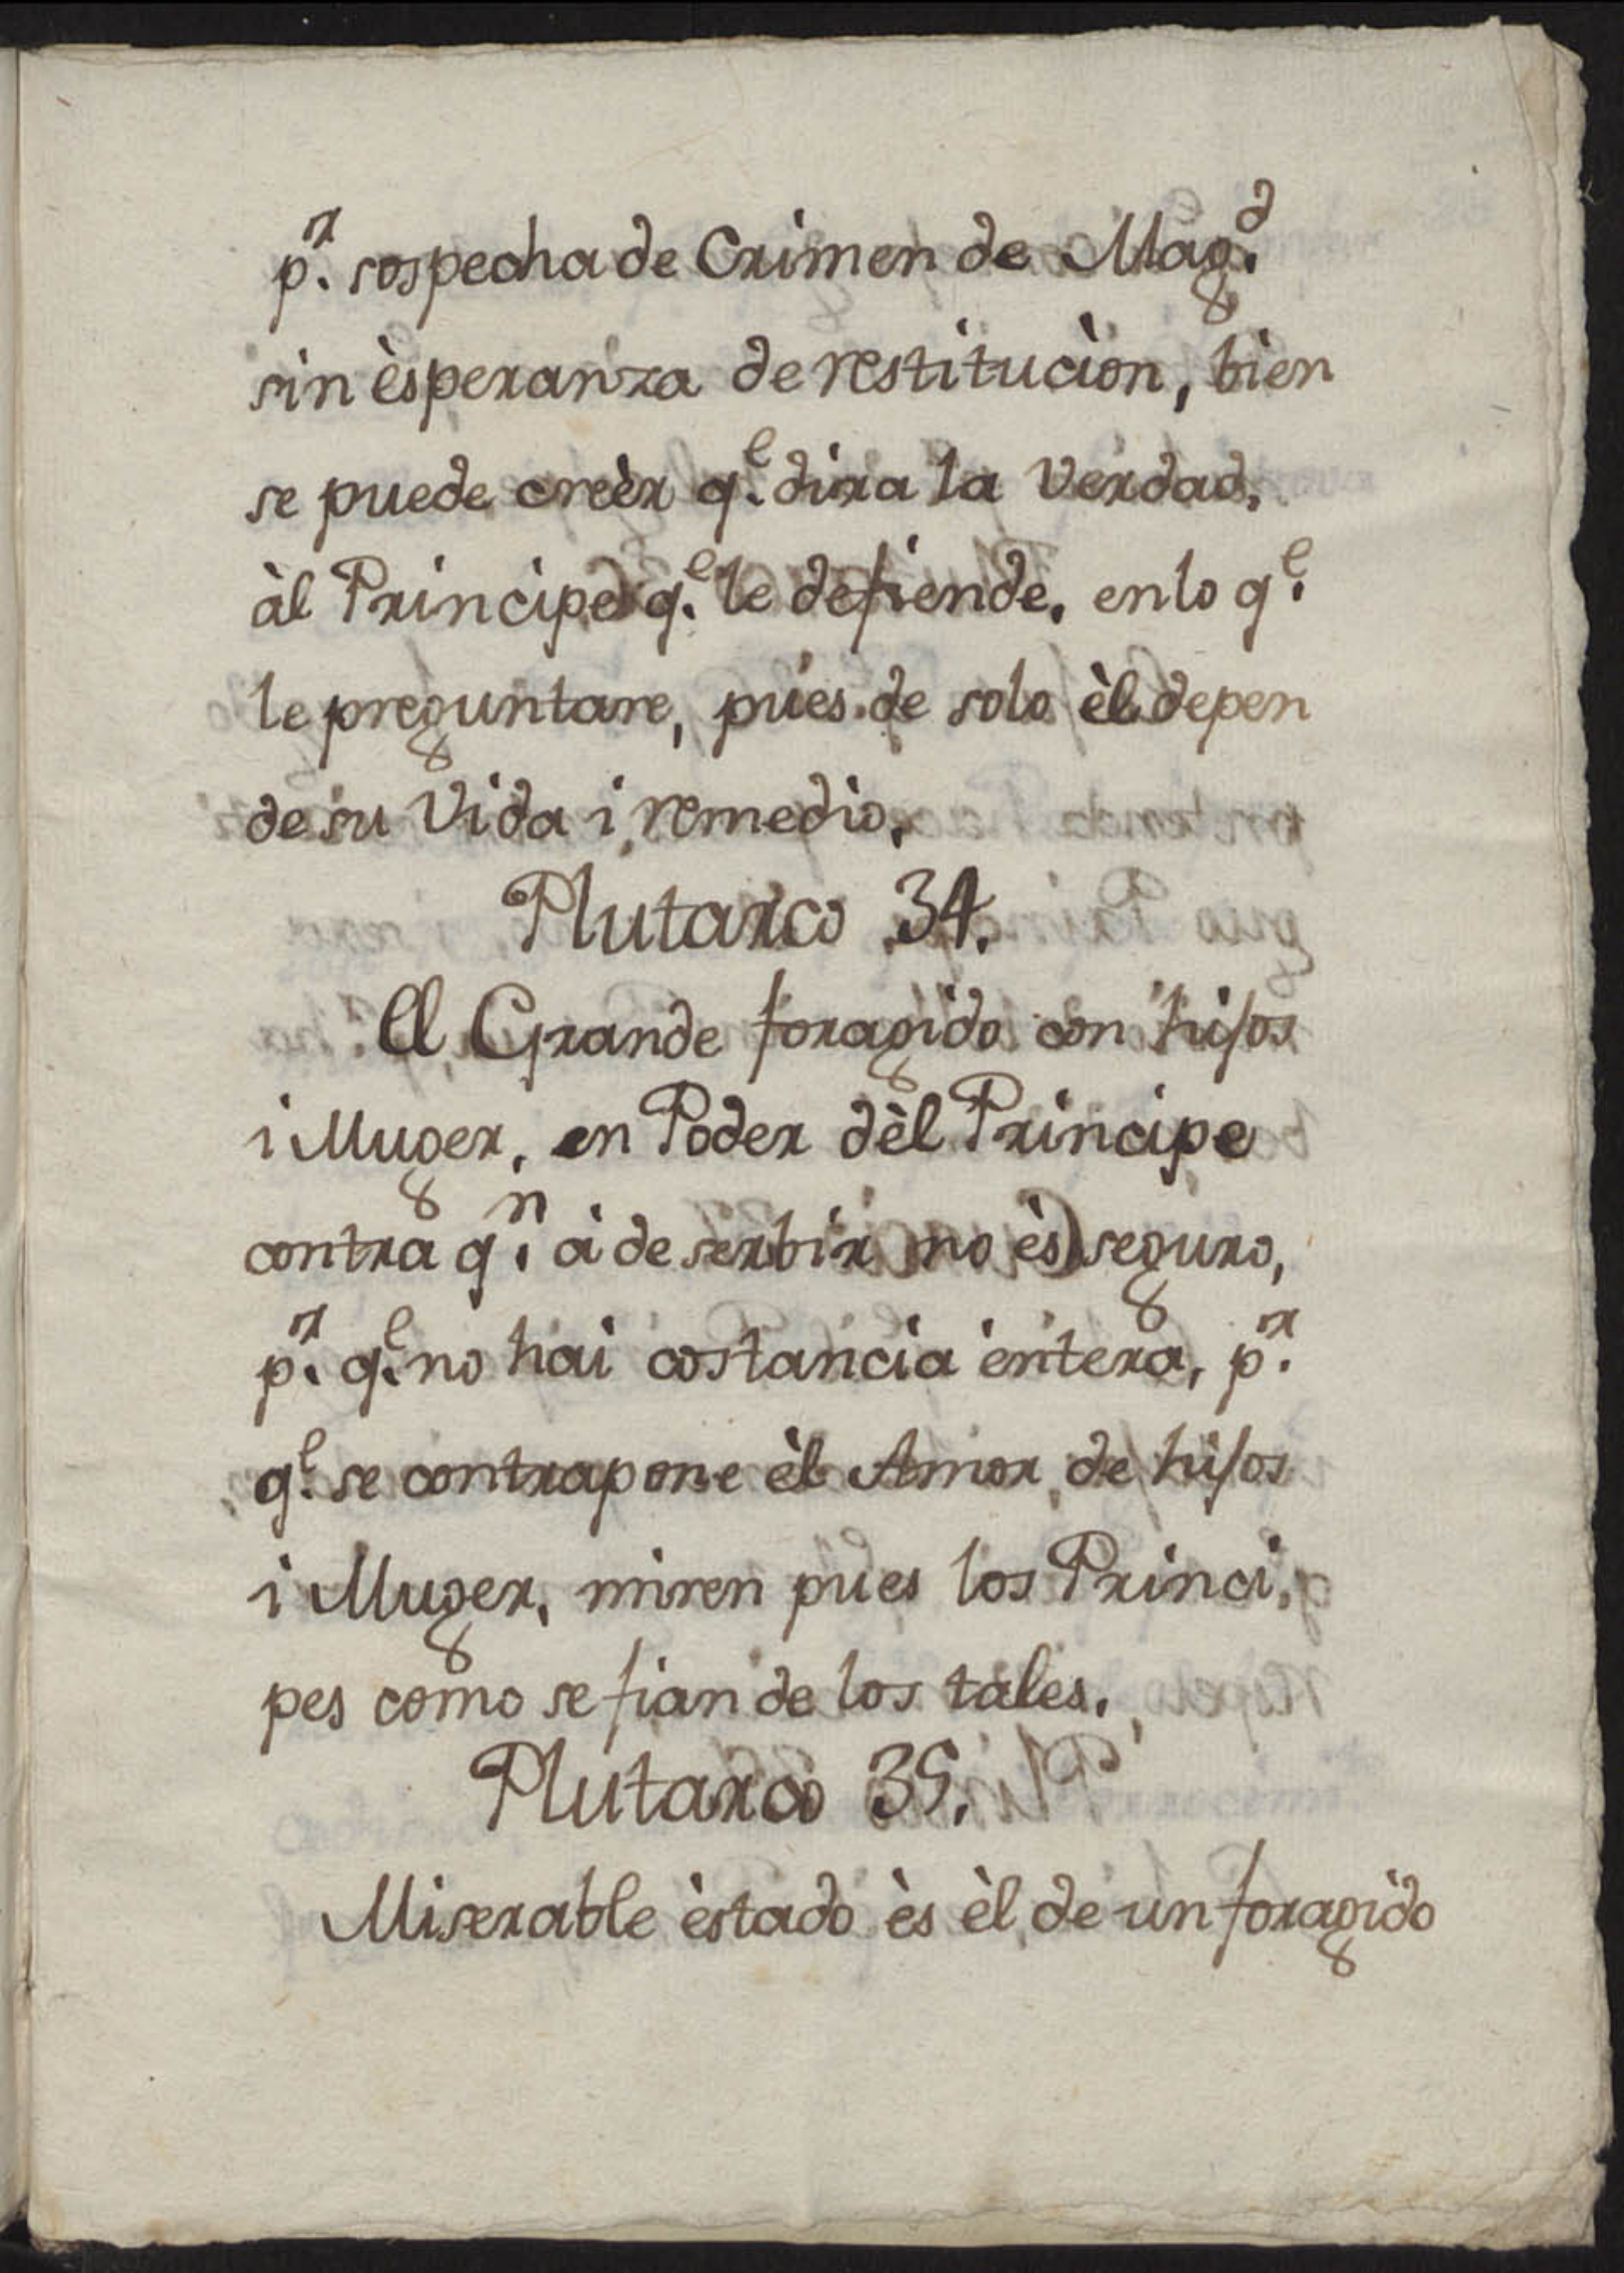 p.r sospecha de Crimen de Mag.d
sin èsperanza de restituciòn, bien
se puede creèr q.e dira la Verdad,
àl Principe q.e le defiende, en lo q.e
le preguntare, pues de solo èl depen
de su Vida i remedio.
Plutarco 34.
El Grande foragido con hijos
i Muger, en Poder dèl Principe
contra q.n à de serbir no ès seguro,
p.r q.e no hai costancia entera, p.r
q.e se contrapone èl Amor de hijos
i Muger, miren pues los Princi,
pes como se fian de los tales.
Plutarco 35.
Miserable èstado ès èl de un foragido